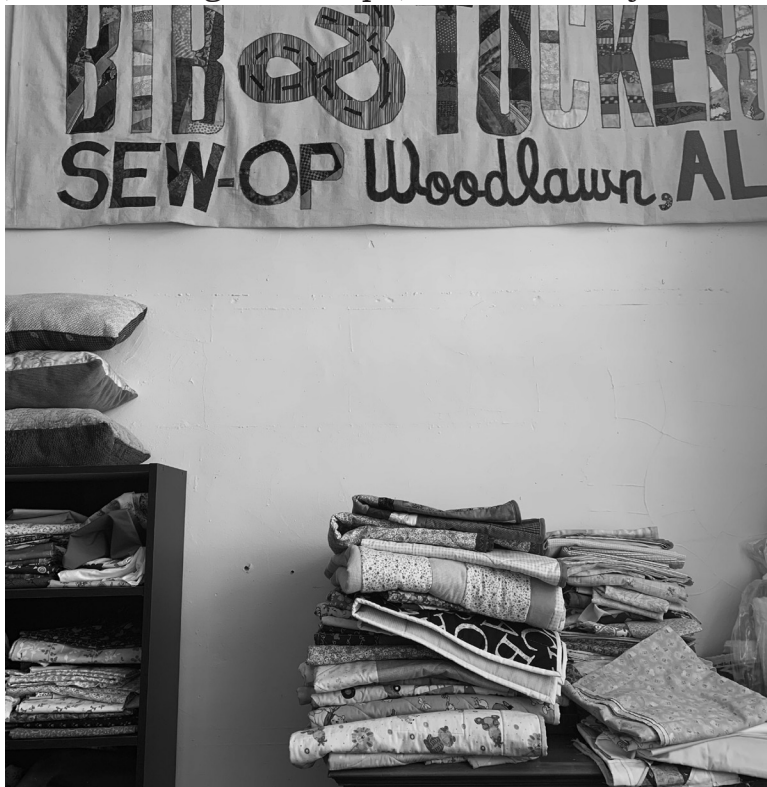 BIB & TUCKER
SEW-OP Woodlawn, AL